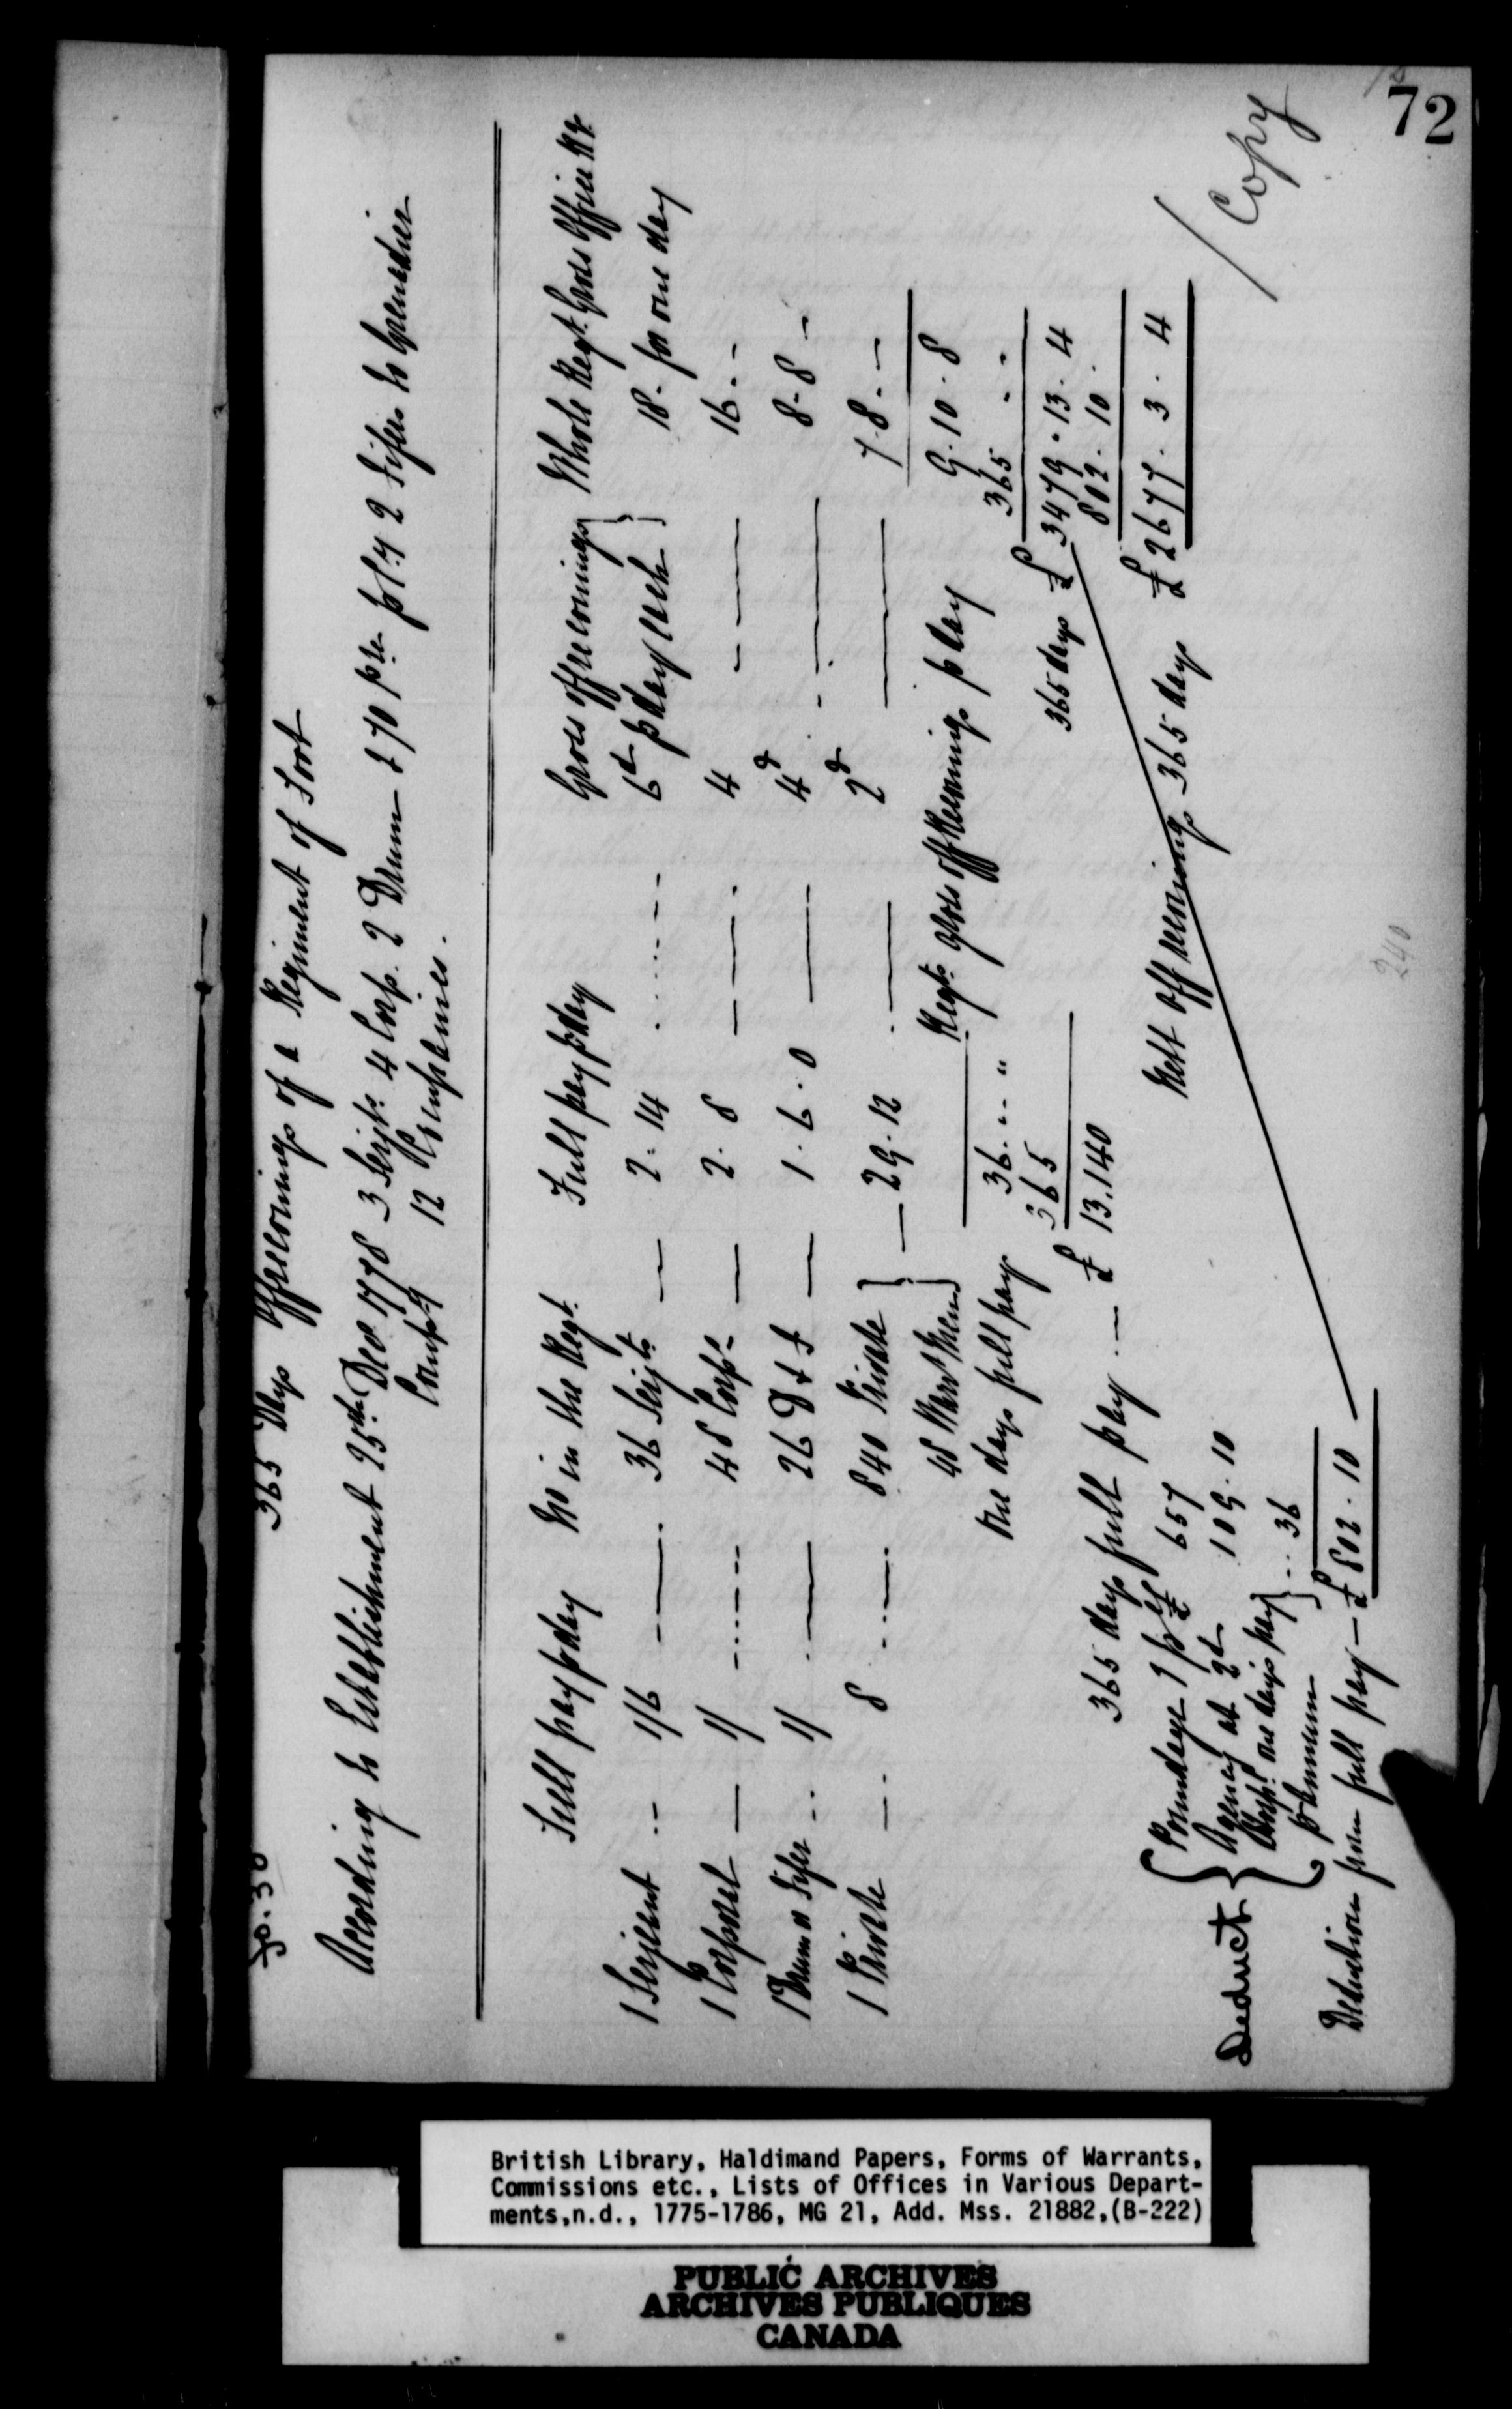 72
fo. 30
365 Days Offreconings of a Regiment of Foot
According to Establishment 25th Decr 1778 3 Serjts 4 Corps 2 Drum 270 pte 2 Fifers to Grenadier
Compy 12 Companies.
Full pay p day No in the Regt. Full pay p day Gross offreconings } Whole Regt Gross Offrecks
1 Serjeant -- 1/6 36 Serjts — 2. 14 6d p day each } 18. for one day
1 Corporal — 1/ 48 Corps — 2. 8 4 16. -
1 Drum or Fifer -- 1/ 26 D & F — 1. 6. 0 4d 8. 8 -
1 Private — 8 840 Private } — 29. 12 2d 7. 8. -
48 Warrt Men }
Regts gross offreckonings p day 9. 10. 8
One days full pay 36. - - " 365 - -
365
365 days £ 3479. 13. 4
365 days full pay — £ 13.140 802. 10.
Deduct { Poundage 1/ p £ £ 657
Agency at 2d 109. 10
Hospl. one days pay } -- 36
p annum
Nett Offreconings 365 days £ 2677. 3. 4
Deduction from full pay — £ 802. 10
/ Copy
240
British Library, Haldimand Papers, Forms of Warrants,
Commissions etc., Lists of Offices in Various Depart-
ments,n.d., 1775-1786, MG 21, Add. Mss. 21882,(B-222)
PUBLIC ARCHIVES
ARCHIVES PUBLIQUES
CANADA